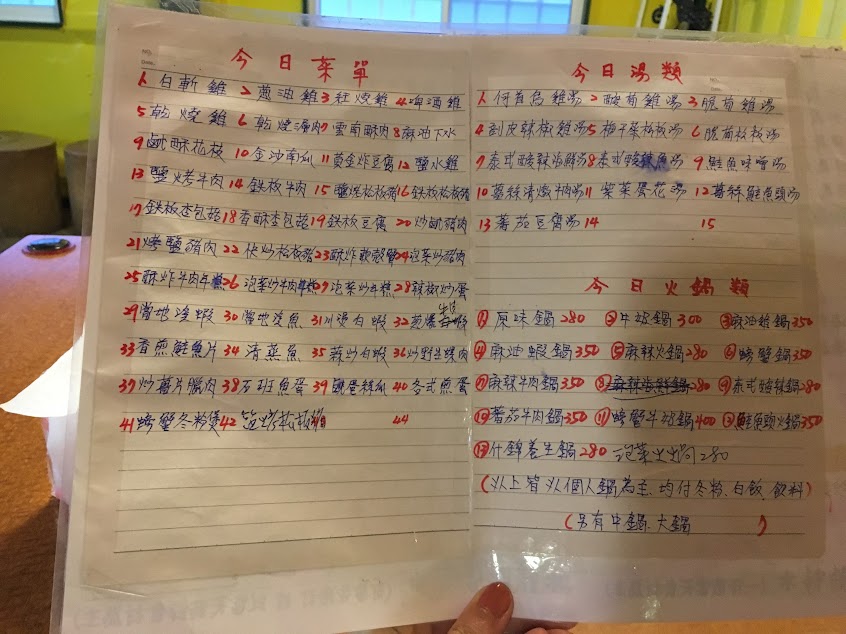 今日菜單
1 白斬雞 2 蔥油雞 3 紅燒雞 4 啤酒雞
5 乾燒雞 6 乾燒湯肉 7 雲南酥肉 8 麻油下水
9 鹹酥花枝 10 金沙南瓜 11 黃金炸豆腐 12 鹽水雞
13 鹽烤牛肉 14 鉄板牛肉 15 鹽焗松板豬 16 鉄板松板豬
17 鉄板杏包菇 18 香酥杏包菇 19 鉄板豆腐 20 炒鹹豬肉
21 烤鹽豬肉 22 快炒松板豬 23 酥炸軟殼蟹 24 泡菜炒豬肉
25 酥炸牛肉年糕 26 泡菜炒牛肉年糕 27 泡菜炒年糕 28 辣椒炒蛋
29 當地冷蝦 30 當地沒魚 31 川燙白蝦 32 蔥爆白蝦
33 香煎鮭魚片 34 清蒸魚 35 蒜炒白蝦 36 炒野生螺肉
37 炒薯片臘肉 38 石斑魚蛋 39 鹹蛋絲瓜 40 各式煎蛋
41 螃蟹冬粉煲 42 44
今日湯類
1 何首烏雞湯 2 酸菊雞湯 3 脆菊雞湯
4 剝皮辣椒雞湯 5 梅干菜松板湯 6 脆菊松板湯
7 泰式酸辣海鮮湯 8 泰式酸辣魚湯 9 鮭魚味噌湯
10 薑絲清燉牛肉湯 11 紫菜蛋花湯 12 薑絲鮭魚頭湯
13 蕃茄豆腐湯 14 15
今日火鍋類
① 原味鍋280 ② 牛奶鍋300 ③ 麻油雞鍋350
④ 麻油蝦鍋350 ⑤ 麻辣火鍋280 ⑥ 螃蟹鍋350
⑦ 麻辣牛肉鍋350 ⑧ 麻辣海鮮鍋 ⑨ 泰式酸辣鍋280
⑩ 蕃茄牛肉鍋350 ⑪ 螃蟹牛奶鍋400 ⑫ 鮭魚頭火鍋350
⑬ 什錦養生鍋280 泡菜火鍋280
(以上皆以個人鍋為主、均付冬粉、白飯、飲料)
(另有中鍋、大鍋)